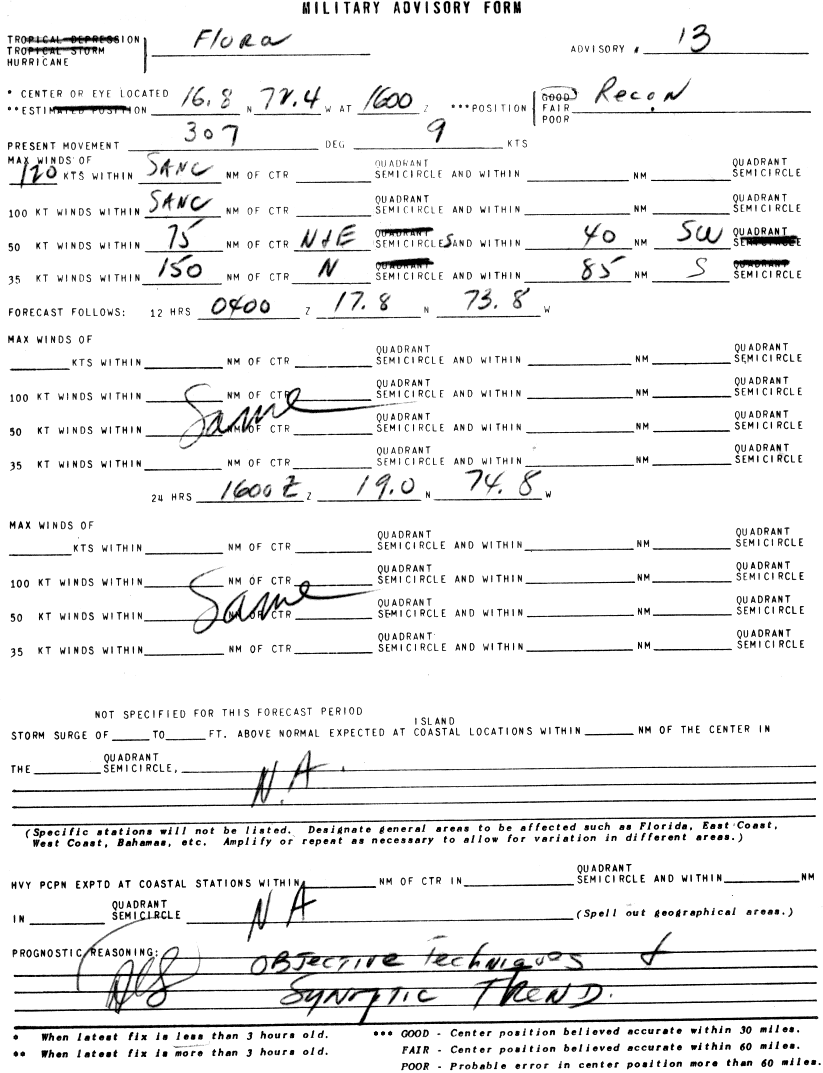 MILITARY ADVISORY FORM
TROPICAL DEPRESSION
TROPICAL STORM Flora ADVISORY # 13
HURRICANE
* CENTER OR EYE LOCATED GOOD
**ESTIMATED POSITION 16.8 N 72.4 W AT 1600 Z ***POSITION FAIR Recon
POOR
PRESENT MOVEMENT 307 DEG 9 KTS
MAX WINDS OF QUADRANT QUADRANT
120 KTS WITHIN NM OF CTR SEMICIRCLE AND WITHIN NM SEMICIRCLE
QUADRANT QUADRANT
100 KT WINDS WITHIN NM OF CTR SEMICIRCLE AND WITHIN NM SEMICIRCLE
QUADRANT QUADRANT
50 KT WINDS WITHIN 75 NM OF CTR N+E SEMICIRCLES AND WITHIN 40 NM SW SEMICIRCLE
QUADRANT QUADRANT
35 KT WINDS WITHIN 150 NM OF CTR N SEMICIRCLE AND WITHIN 85 NM S SEMICIRCLE
FORECAST FOLLOWS: 12 HRS 0400 Z 17.8 N 73.8 W
MAX WINDS OF QUADRANT QUADRANT
KTS WITHIN NM OF CTR SEMICIRCLE AND WITHIN NM SEMICIRCLE
QUADRANT QUADRANT
100 KT WINDS WITHIN NM OF CTR SEMICIRCLE AND WITHIN NM SEMICIRCLE
Same QUADRANT QUADRANT
50 KT WINDS WITHIN NM OF CTR SEMICIRCLE AND WITHIN NM SEMICIRCLE
QUADRANT QUADRANT
35 KT WINDS WITHIN NM OF CTR SEMICIRCLE AND WITHIN NM SEMICIRCLE
24 HRS 1600Z Z 19.0 N 74.8 W
MAX WINDS OF QUADRANT QUADRANT
KTS WITHIN NM OF CTR SEMICIRCLE AND WITHIN NM SEMICIRCLE
QUADRANT QUADRANT
100 KT WINDS WITHIN NM OF CTR SEMICIRCLE AND WITHIN NM SEMICIRCLE
Same QUADRANT QUADRANT
50 KT WINDS WITHIN NM OF CTR SEMICIRCLE AND WITHIN NM SEMICIRCLE
QUADRANT QUADRANT
35 KT WINDS WITHIN NM OF CTR SEMICIRCLE AND WITHIN NM SEMICIRCLE
NOT SPECIFIED FOR THIS FORECAST PERIOD
ISLAND
STORM SURGE OF TO FT. ABOVE NORMAL EXPECTED AT COASTAL LOCATIONS WITHIN NM OF THE CENTER IN
QUADRANT
THE SEMICIRCLE,
N.A.
(Specific stations will not be listed. Designate general areas to be affected such as Florida, East Coast,
West Coast, Bahamas, etc. Amplify or repeat as necessary to allow for variation in different areas.)
QUADRANT
HVY PCPN EXPTD AT COASTAL STATIONS WITHIN NM OF CTR IN SEMICIRCLE AND WITHIN NM
QUADRANT
IN SEMICIRCLE NA (Spell out geographical areas.)
PROGNOSTIC REASONING: OBJECTIVE Techniques &
SYNOPTIC TREND.
* When latest fix is less than 3 hours old. *** GOOD - Center position believed accurate within 30 miles.
** When latest fix is more than 3 hours old. FAIR - Center position believed accurate within 60 miles.
POOR - Probable error in center position more than 60 miles.